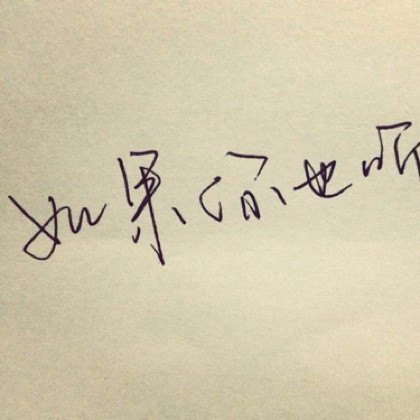 如果你也听